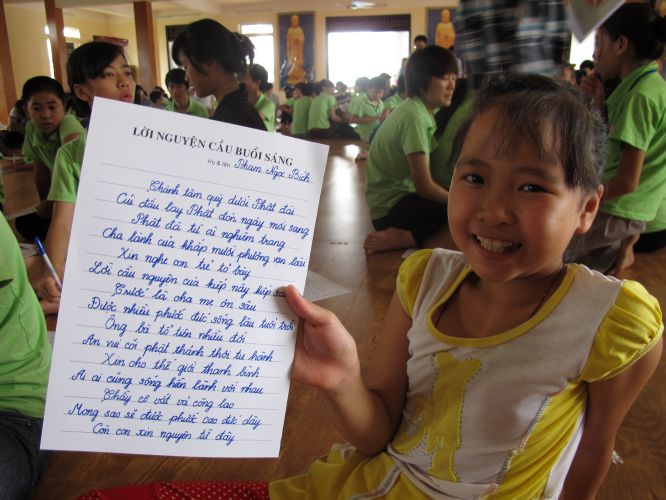 LỜI NGUYỆN CẦU BUỔI SÁNG
Họ & tên: Phạm Ngọc Bích
Thành tâm quỳ dưới Phật đài
Cúi đầu lạy Phật đón ngày mới sang
Phật đã từ ái nghiêm trang
Cha lành của khắp mười phương
Xin nghe con trẻ tỏ bày
Lời cầu nguyện của kiếp này kiếp sau
Trước là cha mẹ ơn sâu
Được nhiều phước đức sống lâu tươi trẻ
Ông bà tổ tiên nhiều đời
An vui cõi phật thảnh thơi tu hành
Xin cho thế giới thanh bình
Ai ai cũng sống hiền lành với nhau
Thầy cô vất vả công lao
Mong sao sẽ được phước cao đức dày
Còn con xin nguyện từ đây